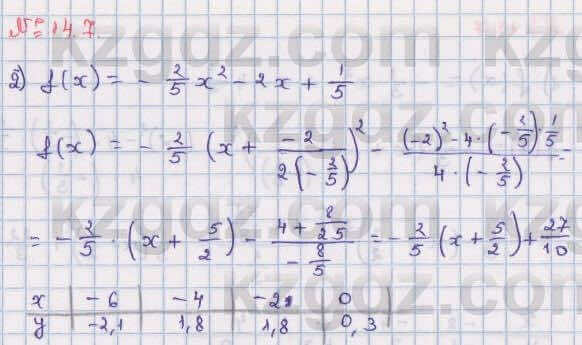 № 14.7.
2) f(x) = - 2/5 x² - 2x + 1/5
f(x) = - 2/5 (x + -2/(2(-2/5)))² - ((-2)² - 4·(-2/5)·1/5)/(4·(-2/5)) =
= - 2/5 · (x + 5/2) - (4 + 8/25)/(-8/5) = - 2/5 (x + 5/2) + 27/10
x | -6 | -4 | -2 | 0
y | -2,1 | 1,8 | 1,8 | 0,3
kzgdz.com